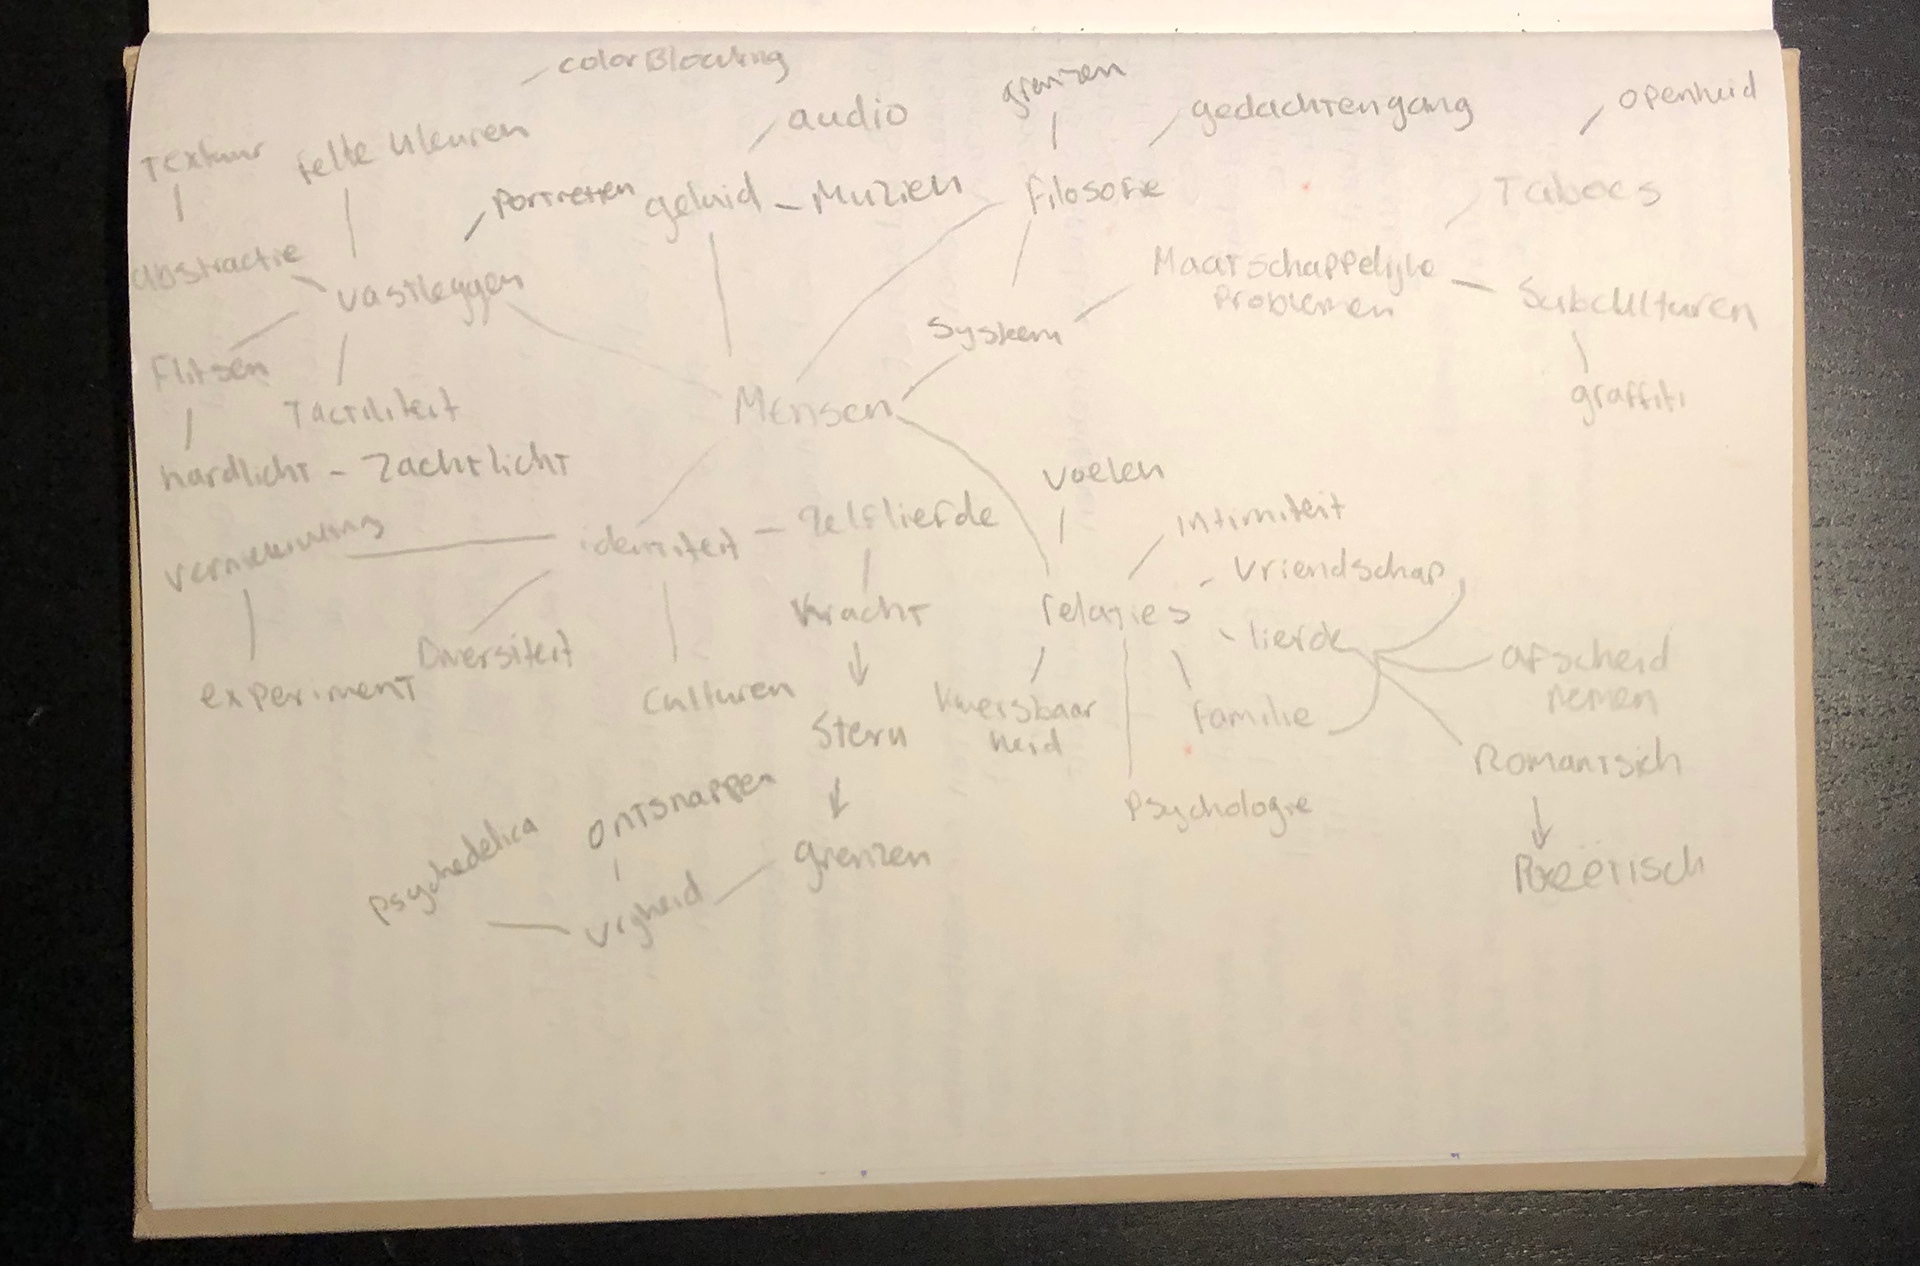 colorBlocking
audio
grenzen
gedachtengang
openheid
Textuur
felle kleuren
Portretten
geluid - Muziek
filosofie
Taboes
abstractie
vastleggen
Maatschappelijke
Problemen
Subculturen
Systeem
Flitsen
Tactiliteit
Mensen
graffiti
hardlicht - Zachtlicht
voelen
vernieuwing
identiteit - Zelfliefde
Intimiteit
Vriendschap
Kracht
relaties
liefde
Diversiteit
experiment
Culturen
afscheid
nemen
Sterk
Kwetsbaar
heid
familie
Romantsich
Psychologie
ontsnappen
psychedelica
grenzen
vrijheid
Poëetisch